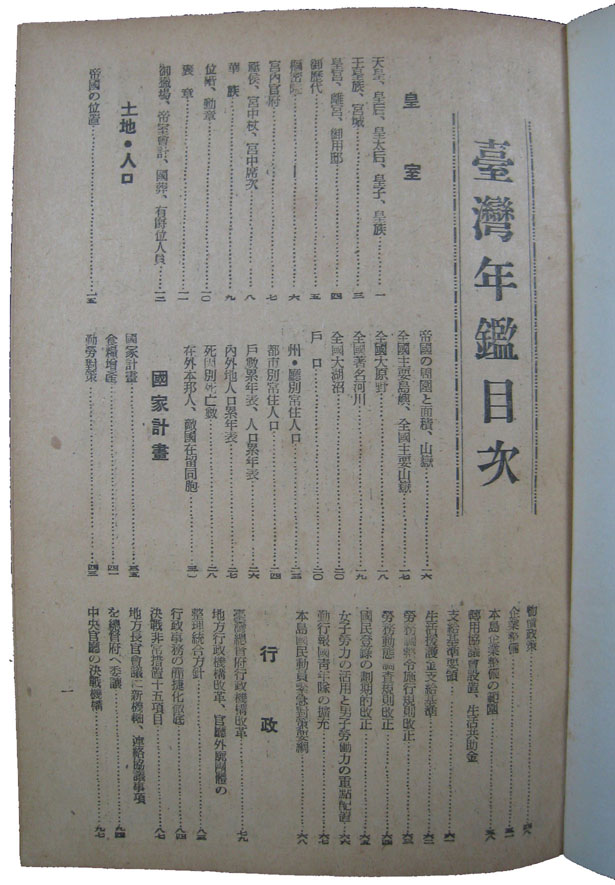 臺灣年鑑目次
皇室
天皇、皇后、皇太后、皇子、皇族……一
王皇族、宮城……三
皇宮、離宮、御用邸……四
御歷代……五
樞密院……六
宮內官府……七
麝侯、宮中杖、宮中席次……八
華族……九
位階、勳章……一〇
褒章……一一
御獵場、帝室會計、國葬、有爵位人員……一二
土地・人口
帝國の位置……一五
帝國の周圍と面積、山嶽……一六
全國主要島嶼、全國主要山嶽……一七
全國大原野……一八
全國著名河川……一九
全國大湖沼……二〇
戶口……二〇
州・廳別常住人口……二三
都市別常住人口……二四
戶數累年表、人口累年表……二六
內外地人口累年表……二七
死因別死亡數……二八
在外本邦人、敵國在留同胞……三一
國家計畫
國家計畫……三五
食糧增產……四一
勤勞對策……四三
物價政策……四八
企業整備……五一
本島企業整備の範圍……五八
商用協議會設置、生活共助金
支給基準要領……六一
生活援護金支給基準……六二
勞務調整令施行規則改正……六三
勞務動態調查規則改正……六四
國民登錄の劃期的改正……六五
女子勞力の活用と男子勞働力の重點配置……六六
勤行報國青年隊の擴充……六七
本島國民動員緊急對策要綱……六八
行政
臺灣總督府行政機構改革……七九
地方行政機構改革、官廳外廓團體の
整理統合方針……八三
行政事務の簡捷化徹底……八四
決戰非常措置十五項目……八七
地方長官會議に新機軸、連絡協議事項
を總督府へ委議……九四
中央官廳の決戰機構……九七
一